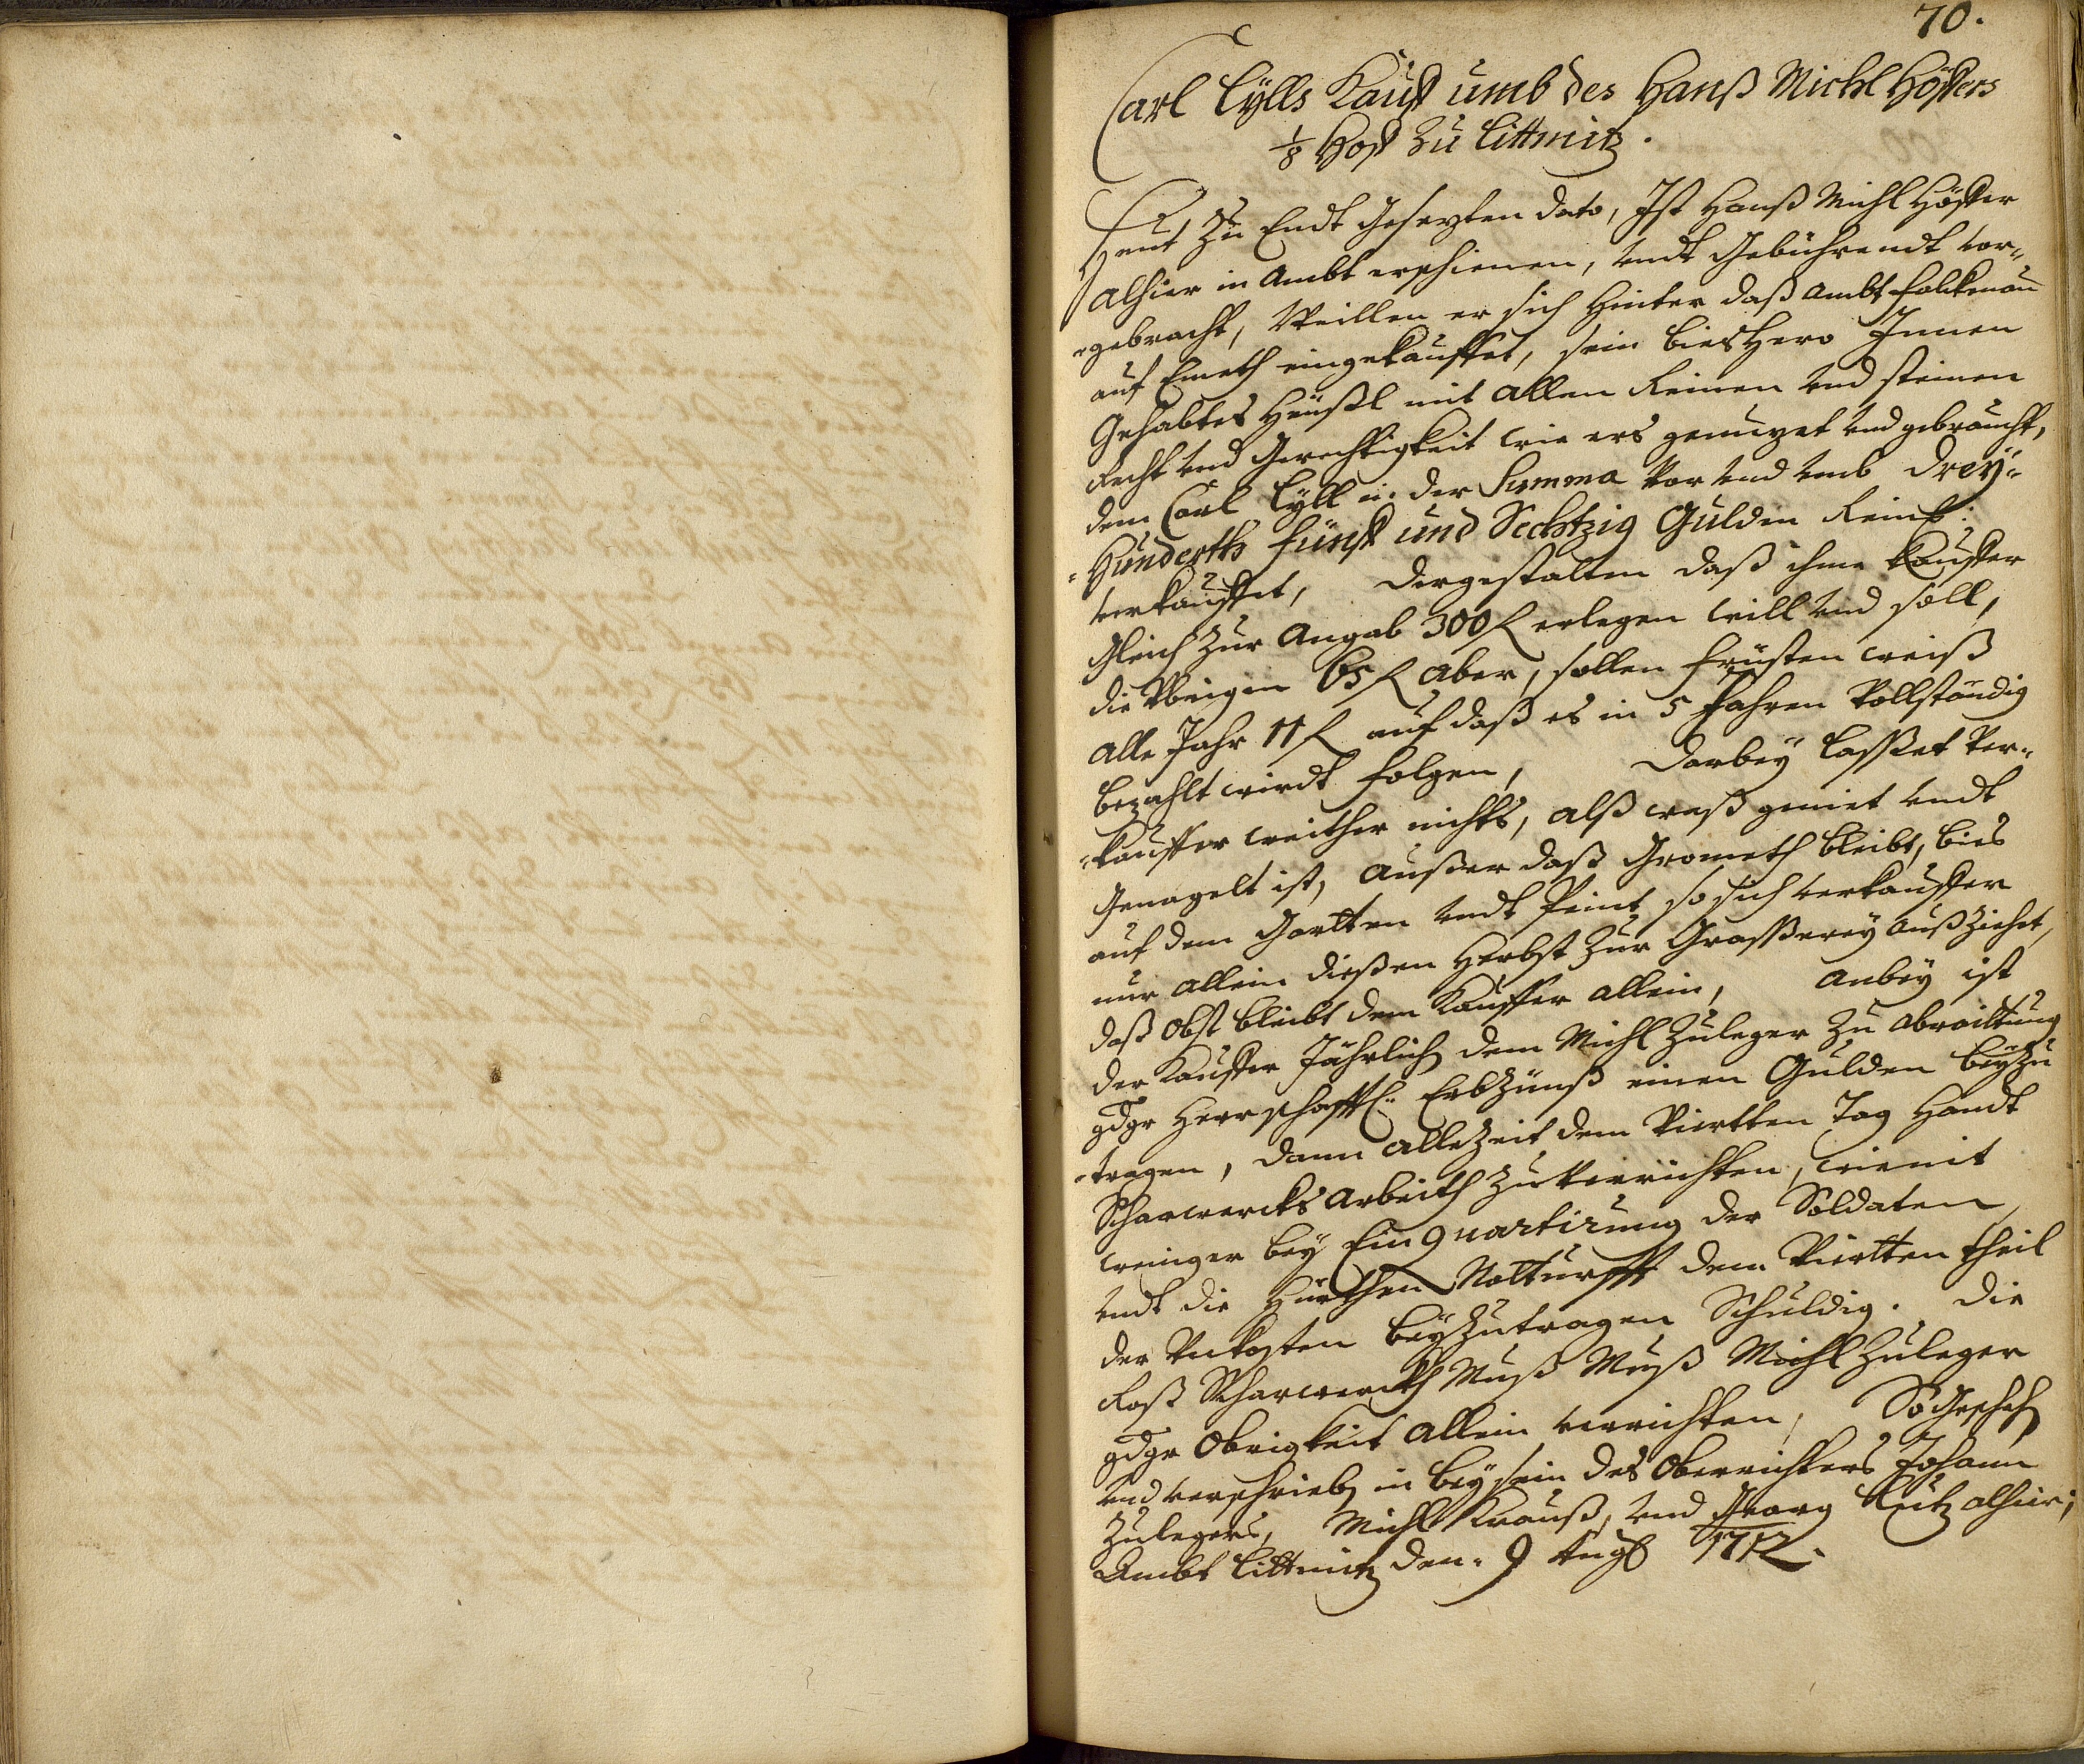 70.
Carl Lylls Kauff umb des Hanß Michl Höffers
1/8 Hoff zu Littmitz.
Heut zu Endt Gesezten dato, Ist Hanß Michl Höffer
alhier in Ambt erschienen, undt Gebührendt vor-
-gebracht, Weillen er sich Hinter daß Ambt Falckenau
auf Emeth eingekauffet, sein bieshero Innen
Gehabtes Heußl mit allen Reinen und steinen
Recht und Gerechtigkeit wie ers genuzet und gebraucht,
dem Carl Lyll in der Summa vor und umb Drey-
-Hunderth fünff und Sechtzig Gulden Reinl:
verkauffet, dergestalten daß ihme Kauffer
Gleich zur Angab 300 f erlegen will und soll,
die Übrigen 65 f aber, sollen früsten weiß
alle Jahr 11 f auf daß es in 5 Jahren Vollständig
bezahlt wirdt folgen, Darbey lasset Ver-
-kauffer weither nichts, alß waß geniet undt
Genagelt ist, außer daß Grometh bleibt, bies
auf dem Gartten undt Peint so sich verkauffer
nur allein dießen Herbst zur Graßerey außziehet,
daß Obst bleibt dem Kauffer allein, Anbey ist
der Kauffer Jährlich dem Michl Zuleger zu abraittung
gdgr Herrschafftl: Erbzünß einen Gulden beyzu
-tragen, dann allezeit dem Viertten Tag Handt
Scharwercks Arbeith zu verrichten, wienit
weniger bey Einquartirung der Soldaten,
undt die Hürthen Notturfft dem Viertten theil
der Unkosten beyzutragen Schuldig. Die
Roß Scharwerckh Muß Muß Michl Zuleger
gdgr Obrigkeit allein verrichten, So Geschehen
und verschrieben in beysein des Oberrichters Johann
Zulegers, Michl Krauß, und Georg Lutz alhier;
Ambt Littmitz den. 9 Aug 1712.